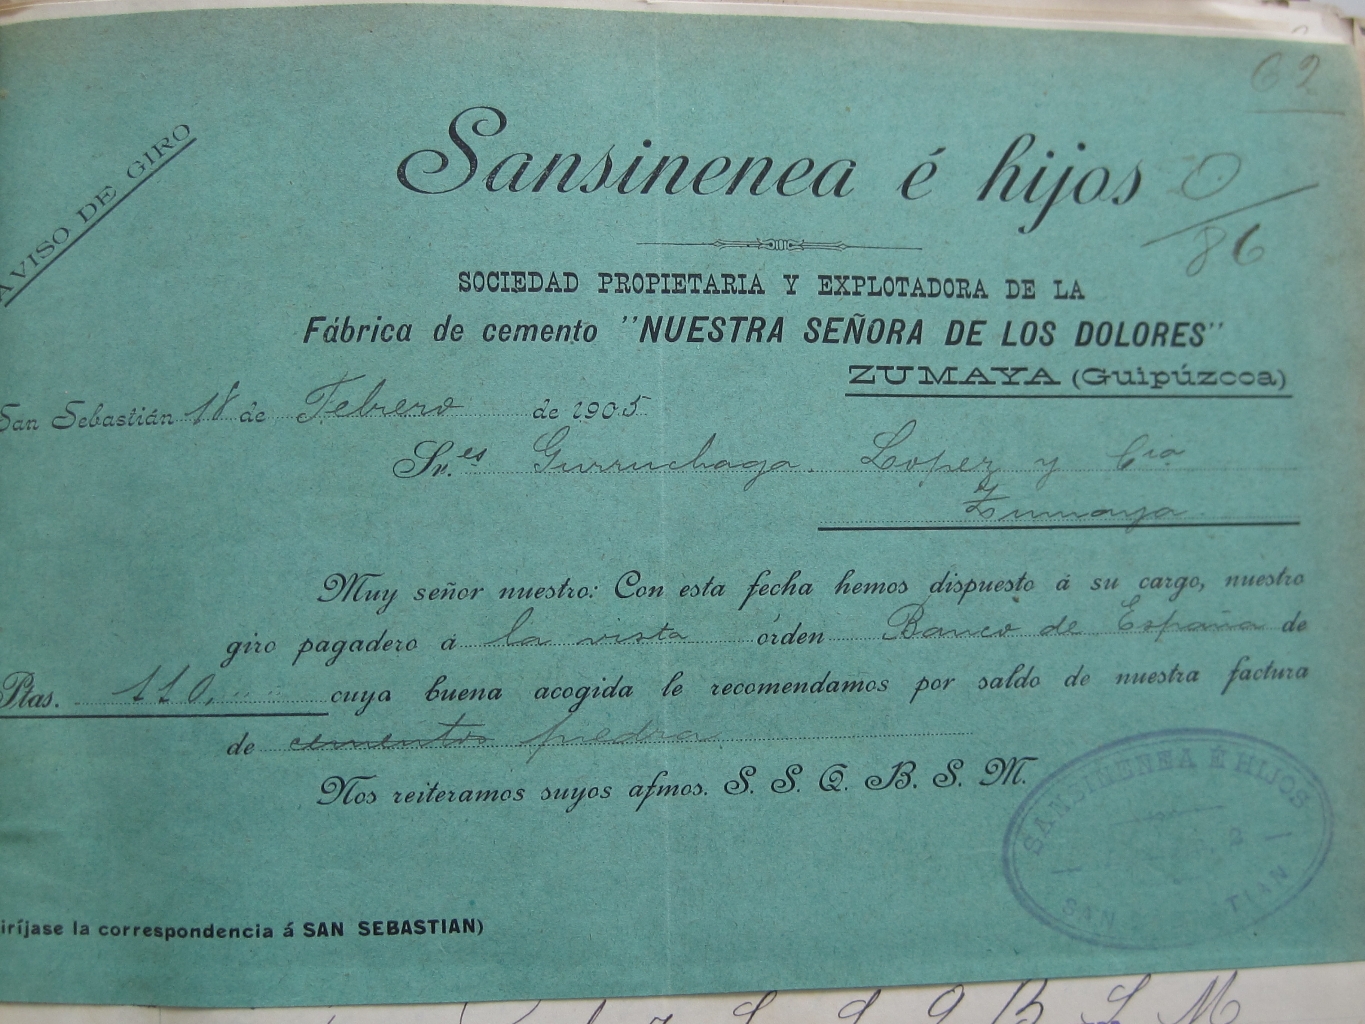 62
AVISO DE GIRO
Sansinenea é hijos
86
SOCIEDAD PROPIETARIA Y EXPLOTADORA DE LA
Fábrica de cemento "NUESTRA SEÑORA DE LOS DOLORES"
ZUMAYA (Guipúzcoa)
San Sebastián 18 de Febrero de 1905
Sr.es Gurruchaga. Lopez y Cia
Zumaya
Muy señor nuestro: Con esta fecha hemos dispuesto á su cargo, nuestro
giro pagadero á la vista órden Banco de España de
Ptas. 110, cuya buena acogida le recomendamos por saldo de nuestra factura
de cementos piedra
Nos reiteramos suyos afmos. S. S. Q. B. S. M.
SANSINENEA É HIJOS
SAN TIAN
iríjase la correspondencia á SAN SEBASTIAN)
S S Q B S M